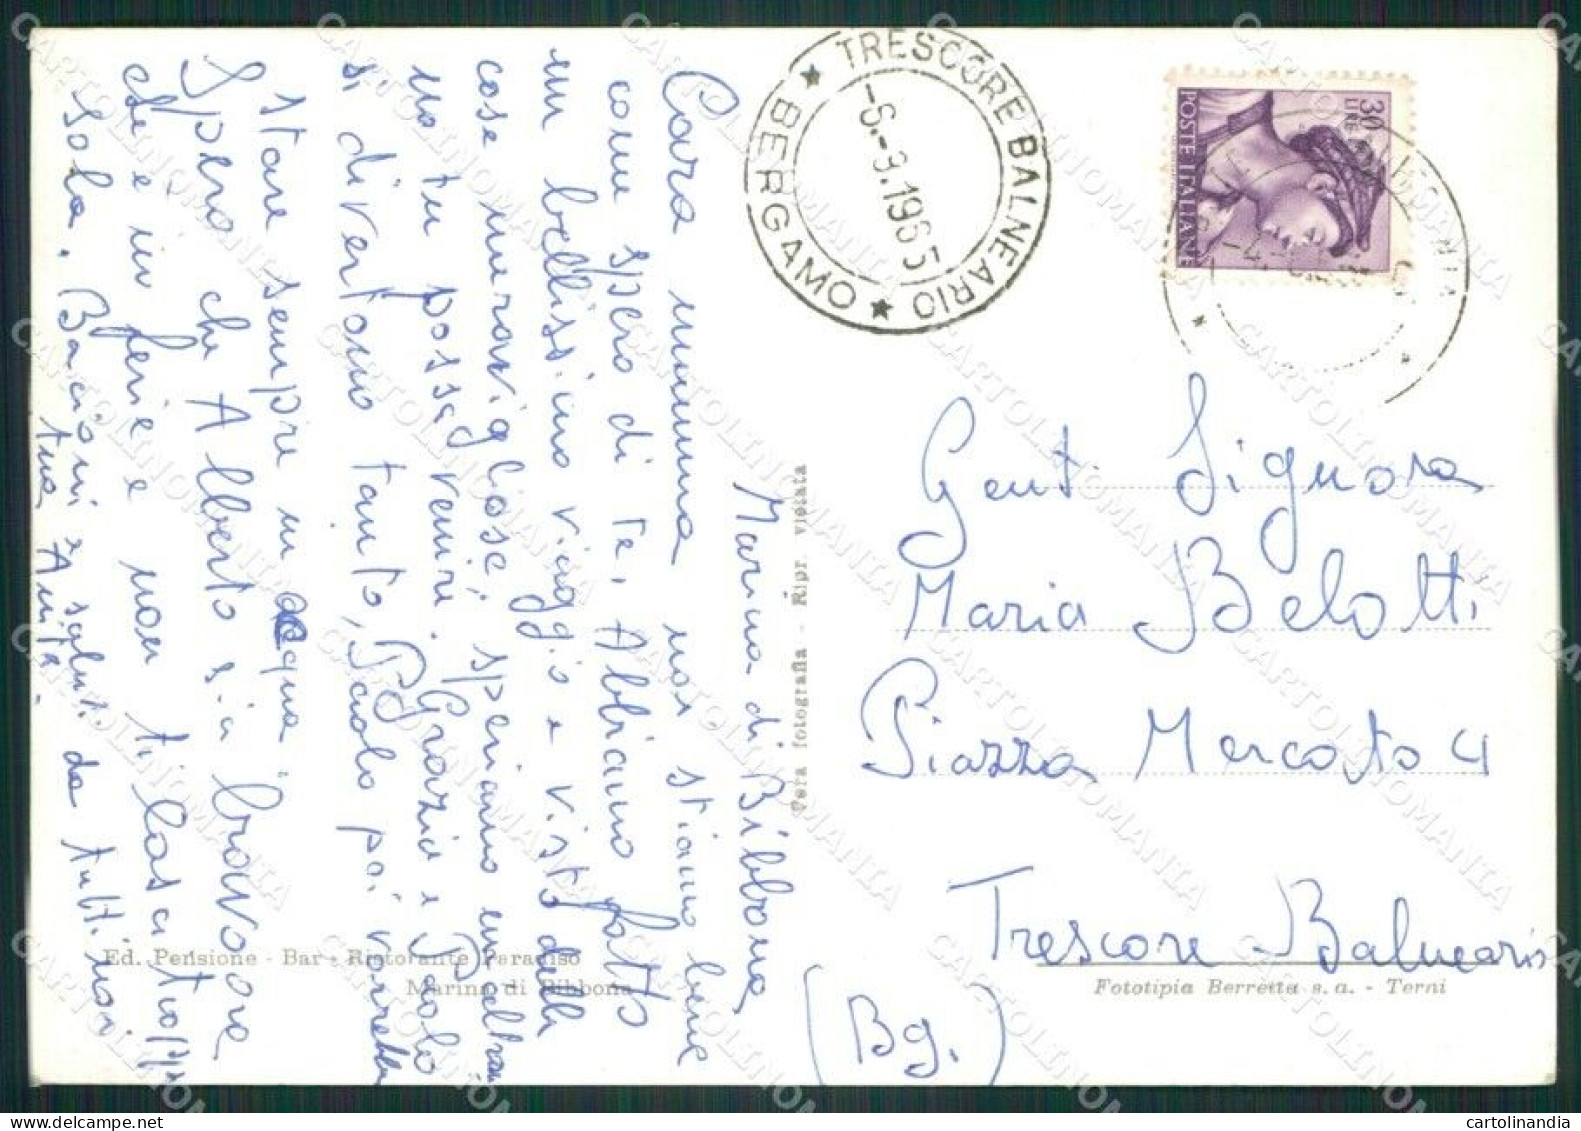 Marina di Bibbona
Cara mamma noi stiamo bene
come spero di te, Abbiamo fatto
un bellissimo viaggio e visto delle
cose meravigliose, speriamo un altr'an
no tu possa venire. Grazia e Paolo
si divertono tanto, Paolo poi vorrebbe
stare sempre in acqua
Spero che Alberto sia bravo ora
che è in ferie e non ti lascia troppo
sola. Bacioni e saluti da tutti noi
tua Anita.
Ed. Pensione - Bar - Ristorante Paradiso
Marina di Bibbona
Vera fotografia - Ripr. vietata
TRESCORE BALNEARIO
★ BERGAMO ★
-6.-9.1965
30
LIRE
POSTE ITALIANE
Gent. Signora
Maria Belotti
Piazza Mercato 4
Trescore Balneario
(Bg.)
Fototipia Berretta s.a. - Terni
CARTOLINOMANIA
cartolinandia